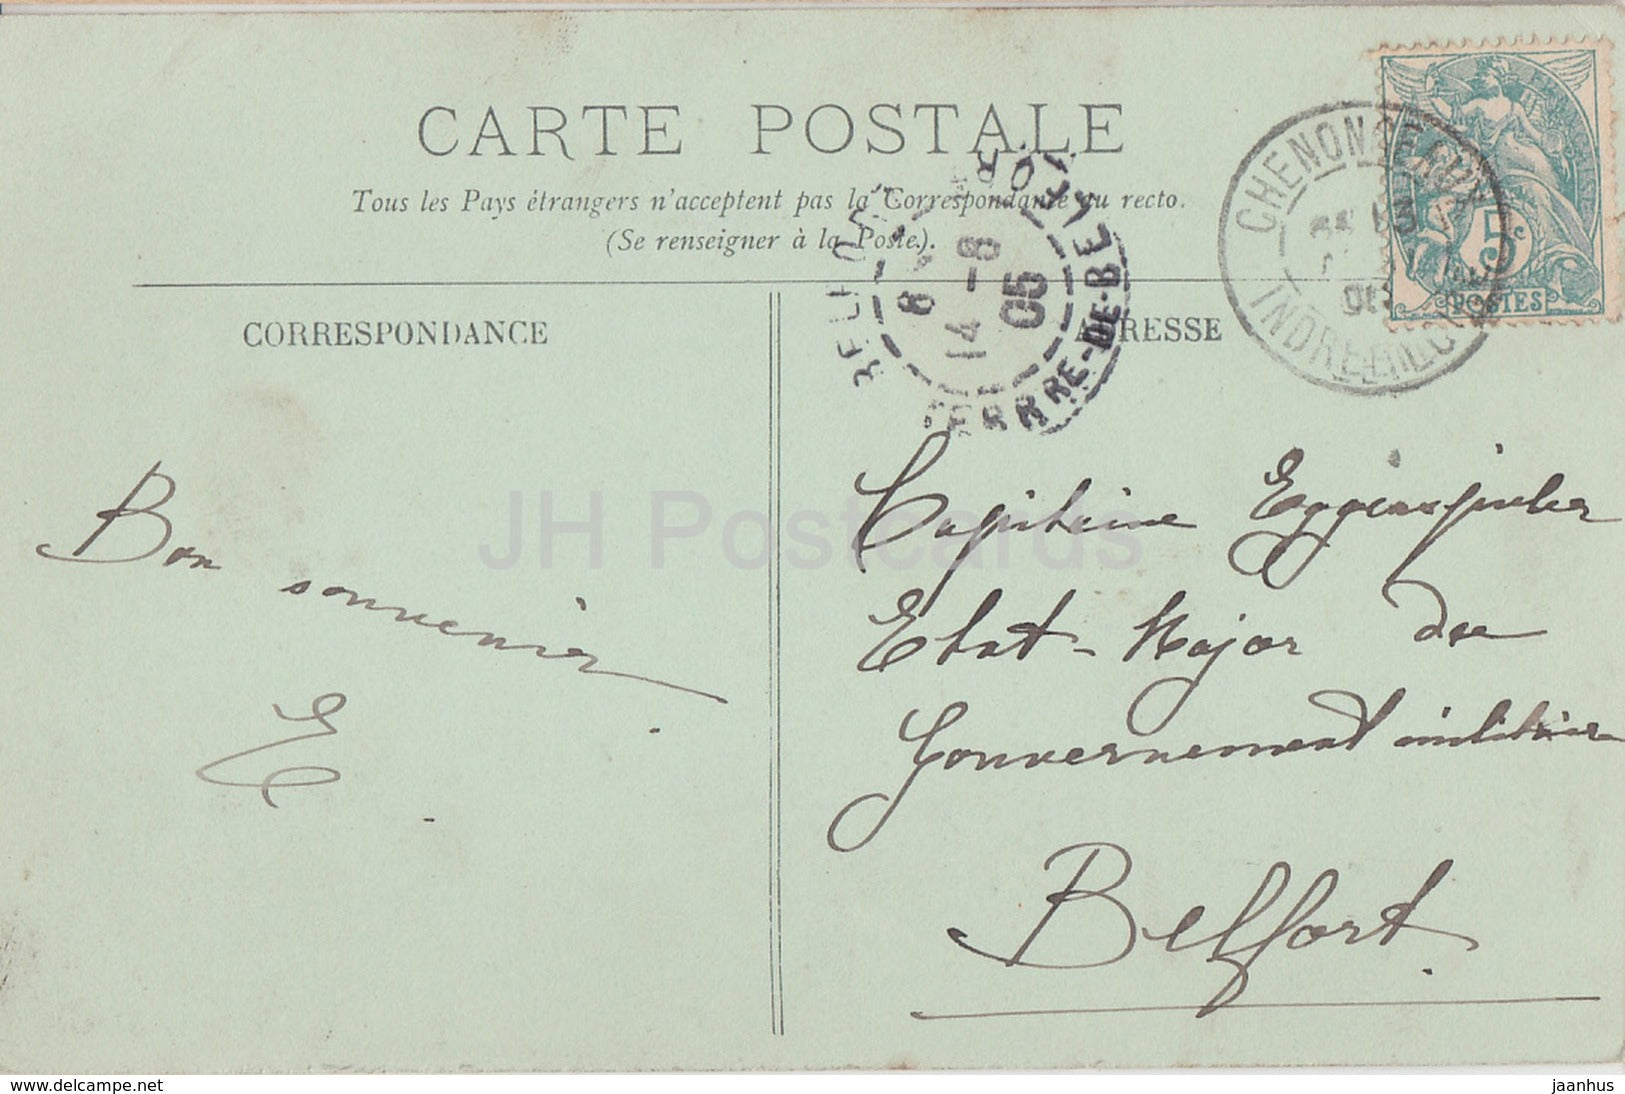 CARTE POSTALE
Tous les Pays étrangers n'acceptent pas la Correspondance au recto.
(Se renseigner à la Poste).
CORRESPONDANCE
ADRESSE
CHENONCEAUX
INDRE-ET-LOIRE
5c
POSTES
BELFORT
8
14 - 8
05
TERRE-DE-BELFORT
Bon souvenir
E.
Capitaine
Etat-Major du
Gouvernement militaire
Belfort.
JH Postcards
www.delcampe.net
jaanhus